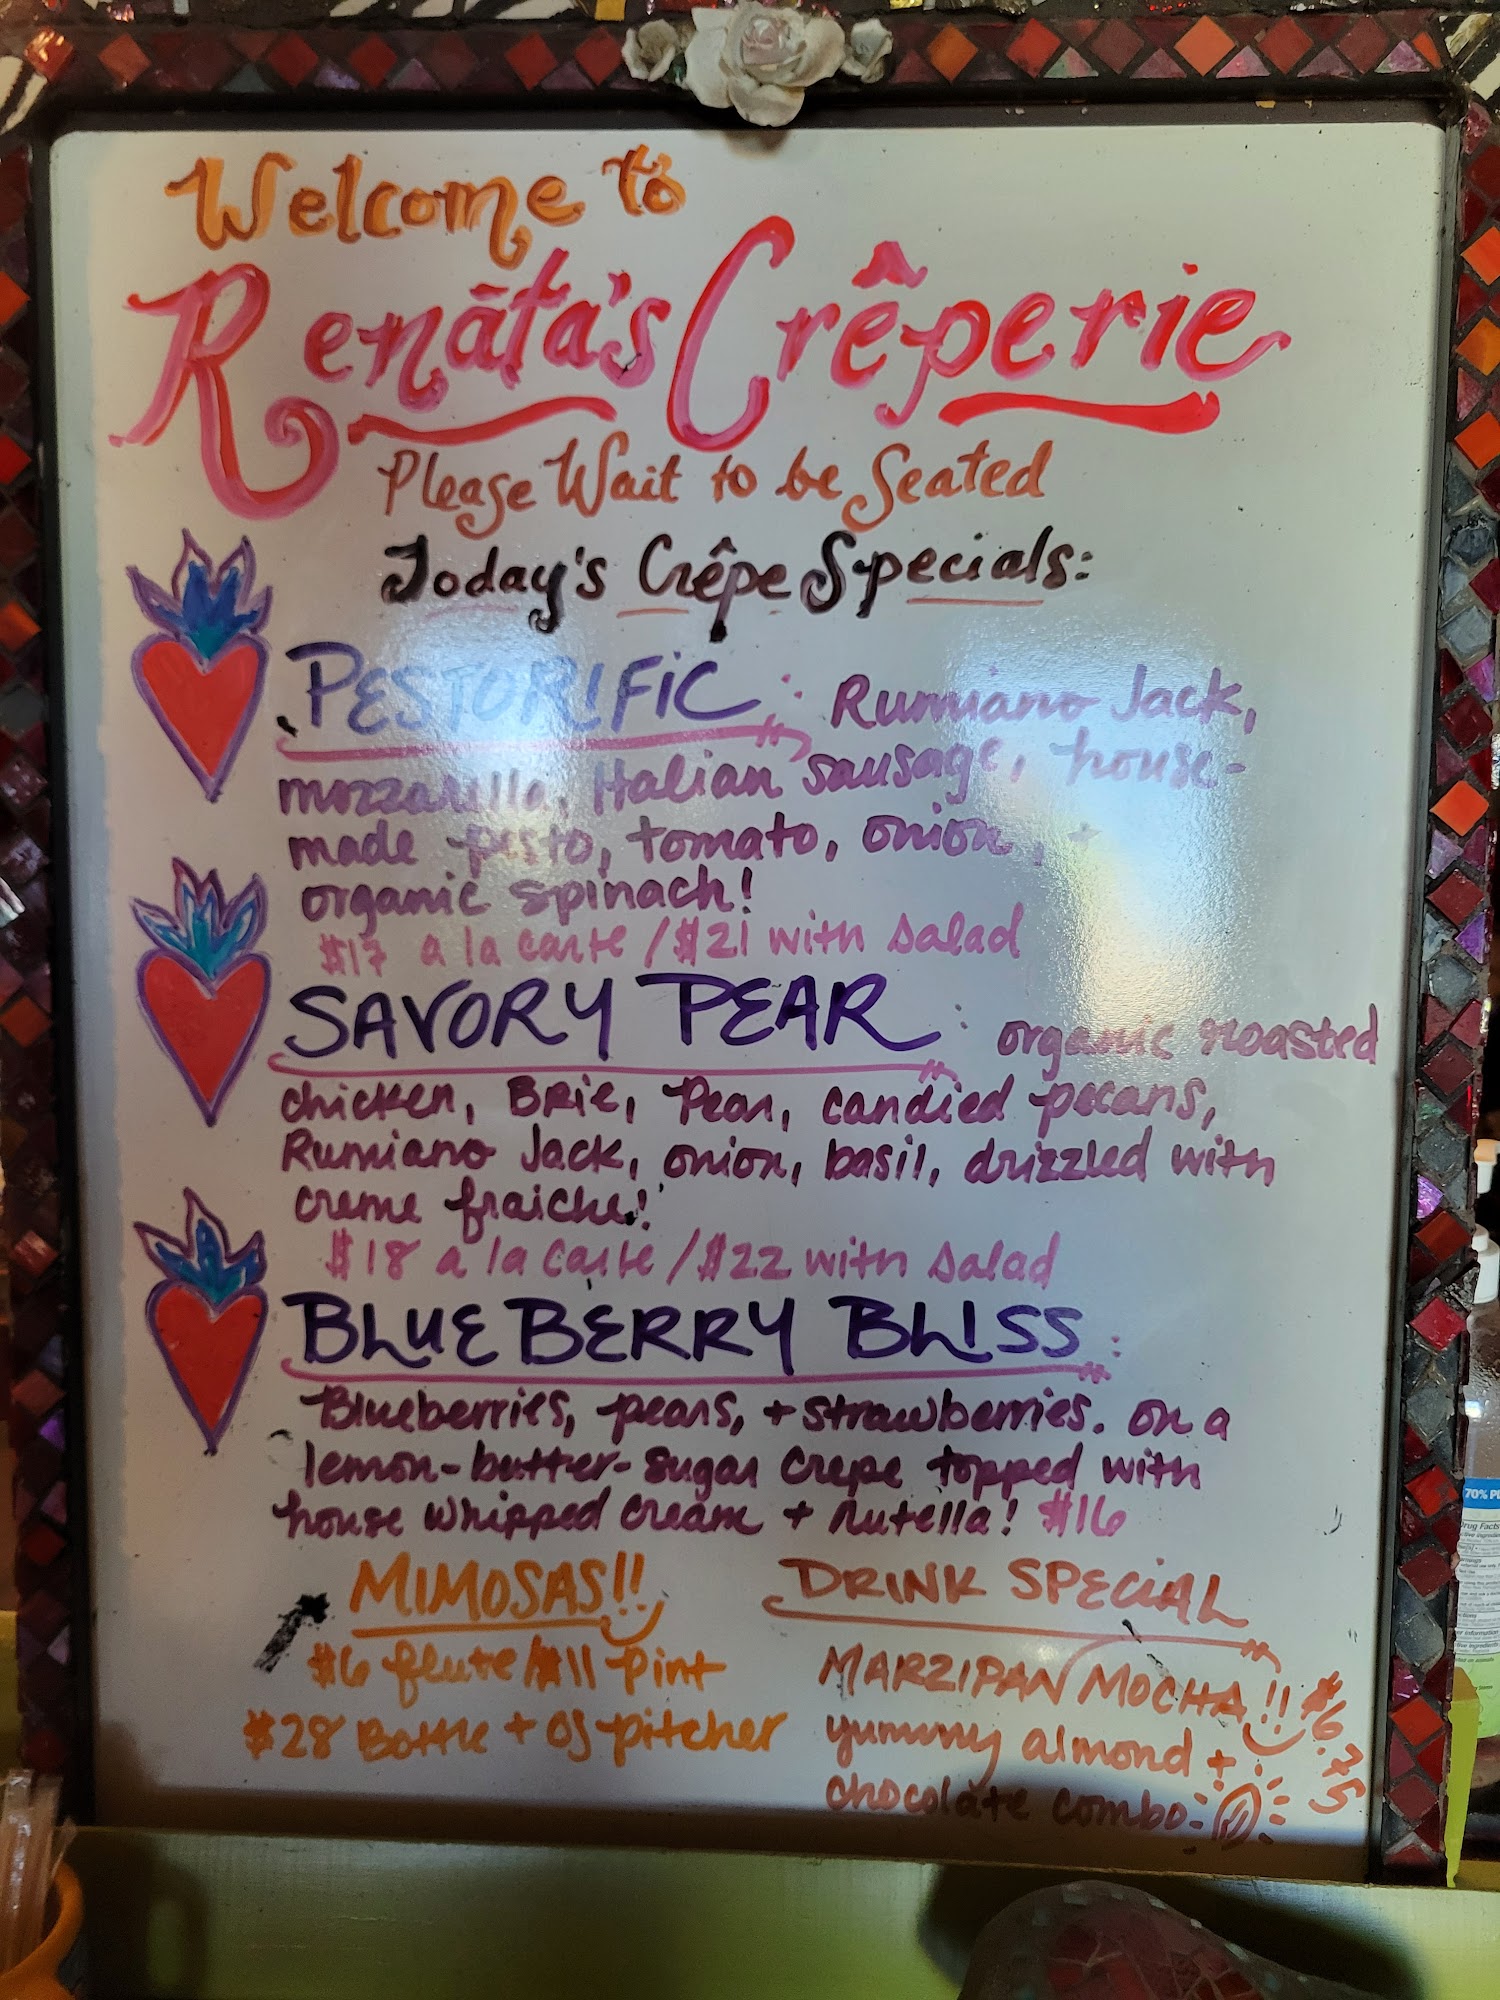 Welcome to
Renata's Crêperie
Please Wait to be Seated
Today's Crêpe Specials:
PESTORIFIC: Rumiano Jack,
mozzarella, Italian sausage, house-
made pesto, tomato, onion, +
organic spinach!
$17 a la carte / $21 with salad
SAVORY PEAR: organic roasted
chicken, Brie, Pear, candied pecans,
Rumiano Jack, onion, basil, drizzled with
creme fraiche!
$18 a la carte / $22 with salad
BLUEBERRY BLISS:
Blueberries, pears, + strawberries. on a
lemon-butter-sugar crepe topped with
house whipped cream + nutella! $16
MIMOSAS!!
$6 flute / $11 pint
$28 Bottle + OJ pitcher
DRINK SPECIAL
MARZIPAN MOCHA!! $6.75
yummy almond +
chocolate combo-
70%
Drug Facts